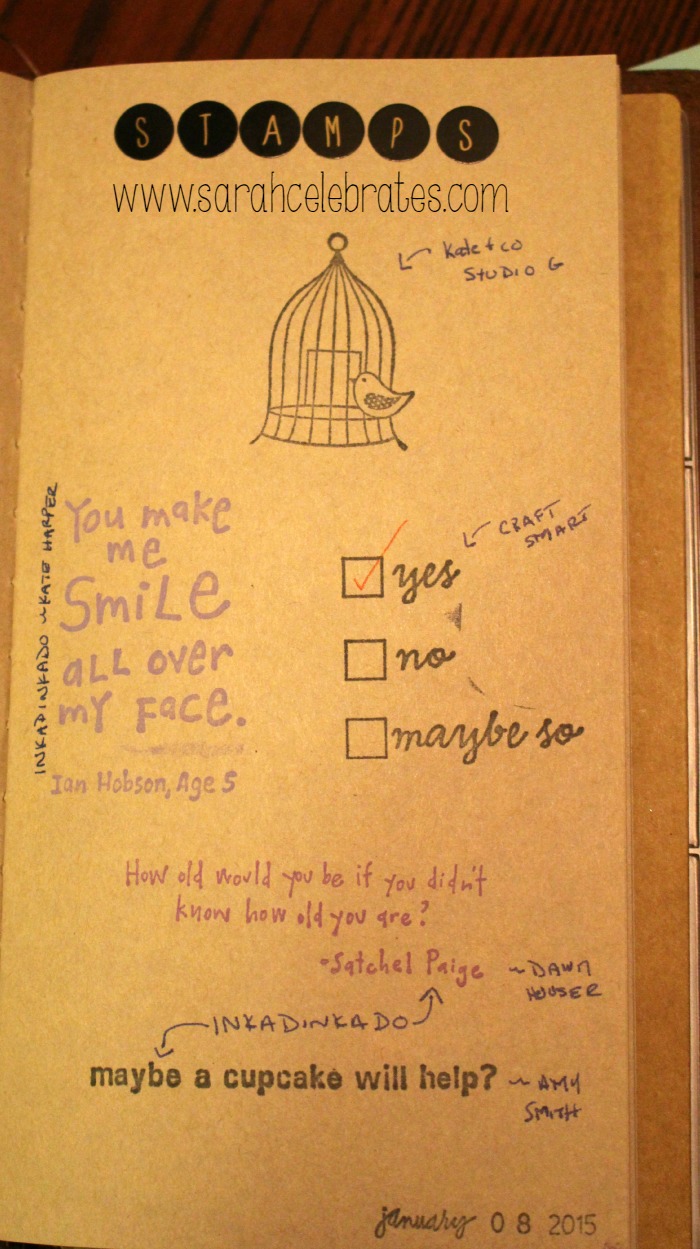 STAMPS
www.sarahcelebrates.com
Kate & co
STUDIO G
INKADINKADO ~ KATE HARPER
You make
me
SmiLe
aLL over
my Face.
Ian Hobson, Age 5
CRAFT
SMART
yes
no
maybe so
How old would you be if you didn't
know how old you are?
-Satchel Paige
~ DAWN
HOUSER
INKADINKADO
maybe a cupcake will help?
~ AMY
SMITH
january 08 2015